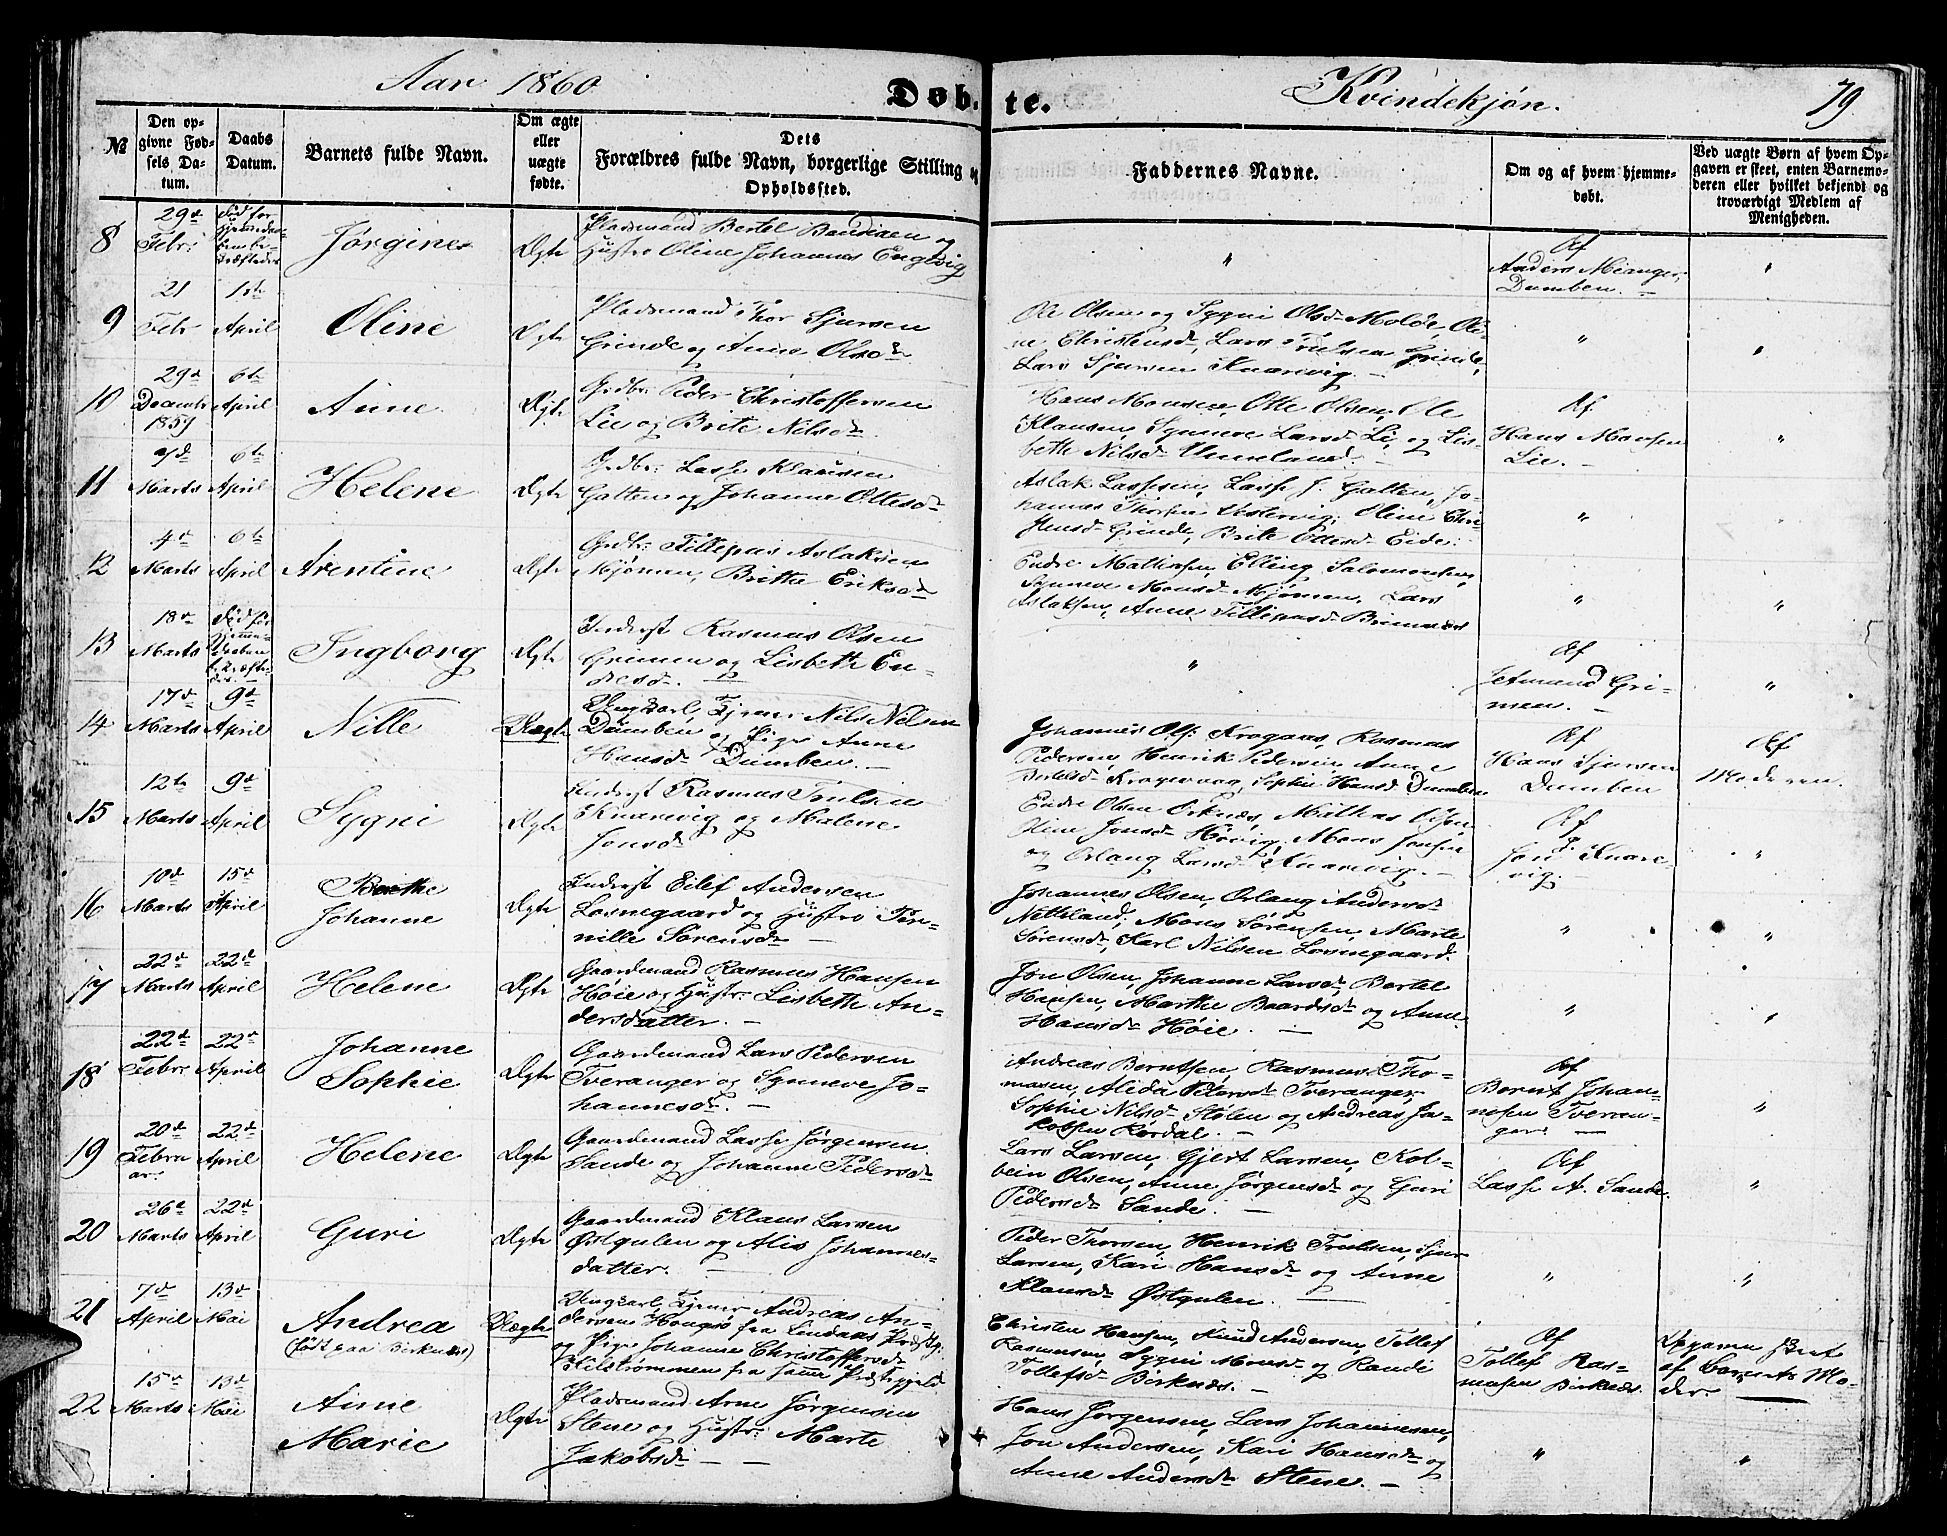 Aar 1860
Døb- te.
Kvindekjøn.
79.
№
Den opgivne Fødsels Datum.
Daabs Datum.
Barnets fulde Navn.
Om ægte eller uægte fødte.
Dets Forældres fulde Navn, borgerlige Stilling og Opholdssted.
Faddernes Navne.
Om og af hvem hjemmedøbt.
Ved uægte Børn af hvem Opgaven er skeet, enten Barnemoderen eller hvilket bekjendt og troværdigt Medlem af Menigheden.
8
29de Febr:
Død før Hjemmedaaben bekræftedes
Jørgine
Ægte
Pladsmand Bertel
Hustro Oline Johannes
"
Af
Anders Mianger,
Dumben. -
"
9
21 Febr
1ste April
Oline
Ægte
Pladsmand Thor Sjursen
Grinde og Anna Olsdr
Ole Olsen og Sygni Olsdr Molde, Oli-
ne Christensdr, Lars Trulsen Grinde,
Lars Sjursen Knarvig. -
"
"
10
29de Decembr 1859
6te April
Anne
Ægte
Grdbr: Peder Christoffersen
Lie og Brite Nilsdr
Hans Monsen, Otte Olsen, Ole
Klausen, Synneve Larsdr Lie og Lis-
beth Nilsdr
Af
Hans Monsen
Lie. -
"
11
7de Marts
6te April
Helene
Ægte
Grdbr: Lasse Klausen
Galten og Johanne Ottesdr
Aslak Lassesen, Lasse J. Galten, Jo-
hannes Thorsen Oline Chri-
stensdr Grinde, Brite Ottesdr Eide.
"
12
4de Marts
6te April
Arentine
Ægte
Grdbr: Fillipus Aslaksen
Mjømen, Britha Eriksdr
Endre Mathisen, Elling Salomonsen,
Synneve Monsdr Mjømen, Lars
Aslaksen, Anne Fillipusdr Brimnæs
"
"
13
18de Marts
Død før Hjemmedaaben bekræftedes
Ingborg
Ægte
Inderst Rasmus Olsen
Grimen og Lisbeth En-
dresdr. -
"
Af
Jetmund Gri-
men. -
"
14
17de Marts
9de April
Nille
Uægte
Ungkarl, Tjener Nils Nilsen
Dumben og Pige Anne
Hansdr Dumben. -
Johannes Ols: Rasmus
Pedersen, Henrik Pedersen Anne
Sophie Hansdr Dumben
Af
Hans Sjursen
Dumben
Af
Moderen.
15
12te Marts
9de April
Sygni
Ægte
Inderst Rasmus Trulsen
Knarvig og Malene
Jonsdr
Endre Olsen Mathias Olsen
Oline Jonsdr Høvig, Mons Jonsen
og Orlaug Larsdr Knarvig. -
Af
Jon J. Knar-
vig. -
"
16
10de Marts
15de April
Berthe
Johanne
Ægte
Inderst Eilef Andersen
Losnegaard og Hustro Per-
nille Sørensdr -
Johannes Olsen, Orlaug Andersdr
Nettland, Mons Sørensen, Marte
Sørensdr, Karl Nilsen Losnegaard.
"
"
17
22de Marts
22de April
Helene
Ægte
Gaardmand Rasmus Hansen
Høie og Hustr: Lisbeth An-
dersdatter. -
Jon Olsen, Johanne Larsdr, Bertel
Hansen, Marthe Baardsdr og Anne
Hansdr Høie. -
"
"
18
22de Febr:
22de April
Johanne
Sophie
Ægte
Gaardmand Lars Pedersen
Tveranger og Synneve Jo-
hannesdr. -
Andreas Berntsen, Rasmus Tho-
masen, Alida Petersdr Tveranger,
Sophie Nilsdr Stølen og Andreas Ja-
kobsen Rørdal. -
Af
Bernt Johan-
nesen Tveran-
ger. -
"
19
20de Februar.
22de April
Helene
Ægte
Gaardmand Lasse Jørgensen
Sande og Johanne Pedersdr
Lars Larsen, Gjert Larsen, Kol-
bein Olsen, Anne Jørgensdr og Guri
Pedersdr Sande. -
Af
Lasse A. Sande.
"
20
26de Marts
22de April
Guri
Ægte
Gaardmand Klaus Larsen
Østgulen og Alis Johannes-
datter. -
Peder Thorsen, Henrik Trulsen, Sjur
Larsen, Kari Hansdr og Anne
Klausdr Østgulen. -
"
"
21
7de April
13de Mai
Andrea
(født paa Birknæs)
Uægte
Ungkarl, Tjener Andreas An-
dersen Hougsø fra Lindaas Præstgj:
og Pige Johanne Christoffersdr
Hilstrømmen fra samme Præstegjeld
Christen Hansen, Knud Andersen, Tollef
Rasmusen, Sygni Monsdr og Randi
Tollefsdr Birknæs. -
Af
Tollef Ras-
musen Birknæs.
Opgaven skeet
af Barnets Mo-
der -
22
15de Marts
13de Mai
Anne
Marie
Ægte
Pladsmand Arne Jørgensen
Stene og Hustr: Marte
Jakobsdr - -
Hans Jørgensen, Lars Johannesen,
Jon Andersen, Kari Hansdr og
Anne Andersdr Stene. -
"
"